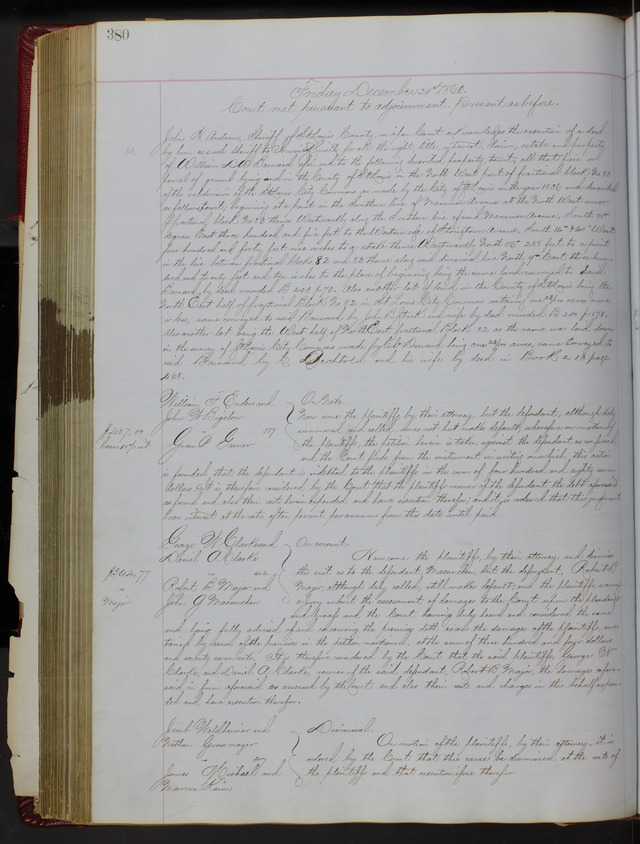 380
Friday December 21st 1860.
Court met pursuant to adjournment. Present as before.
John H Andrews Sheriff of St Louis County, in open Court acknowledges the execution of a deed
by him as such Sheriff to Smith, for all the right, title, interest, claim, estate and property
of William D W Barnard of, in and to the following described property, to wit, all that piece or
parcel of ground lying and in the County of St Louis in the North West part of fractional block No 83
of the subdivision of the St Louis City Commons as made by the City of St Louis in the year 1836 and described
as follows to wit, beginning at a point in the Southern line of Avenue at the North West corner
of fractional block No 83 thence Westwardly along the Southern line of said Avenue, South
degrees East three hundred and five feet to the Western edge of Avenue, South West
four hundred and forty feet inches to a stake thence Westwardly North 85° 288 feet to a point
in the line between fractional blocks 82 and 83 thence along said line North East three hun-
dred and twenty feet and inches to the place of beginning being the same land conveyed to said
Barnard by deed recorded B 203 p 70. Also another lot of land in the County of St Louis being the
North East half of fractional Block No 82 in St Louis City Commons containing one acres more
or less, same conveyed to said Barnard by John and wife by deed recorded B 200 p 171.
Also another lot being the West half of North East fractional Block 82 as the same was laid down
in the survey of St Louis City Commons made by being one acres, same conveyed to
said Barnard by C Bechtold and his wife by deed in Book 218 page
468.
William F Enders and
John W Bigelow
vs
Garner
On Note.
$487.00
Now come the plaintiffs, by their attorney, but the defendant, although duly
summoned and called, comes not but makes default; wherefore on motion of
the plaintiffs, the petition herein is taken against the defendant as confessed
and the Court finds from the instrument in writing on which this action
is founded, that the defendant is indebted to the plaintiffs in the sum of four hundred and eighty seven
dollars. It is therefore considered by the Court that the plaintiffs recover of the defendant the debt aforesaid
as found and also their costs herein expended and have execution therefor; and it is ordered that this judgment
bear interest at the rate of ten percent per annum from this date until paid.
George W Clarke and
Daniel A Clarke
vs
Robert B Major and
John G
On account.
$304.77
vs
Major
Now come the plaintiffs, by their attorney and dismiss
the suit as to the defendant but the defendant, Robert B
Major, although duly called, still makes default; and the plaintiffs waiving
a jury submit the assessment of damages to the Court upon the pleadings
and proofs and the Court having duly heard and considered the same
and being fully advised of and concerning the premises doth assess the damages of the plaintiffs sus-
tained by reason of the premises in the petition mentioned at the sum of three hundred and four dollars
and seventy seven cents. It is therefore considered by the Court that the said plaintiffs, George W
Clarke, and Daniel A Clarke, recover of the said defendant, Robert B Major, the damages afore-
said in form aforesaid assessed by the Court and also their costs and charges in this behalf expen-
ded and have execution therefor.
Jacob Waldheimer and
Nathan
vs
James Michaels and
Marcus Kain
Dismissal.
On motion of the plaintiffs, by their attorney, it is
ordered by the Court that this cause be dismissed at the costs of
the plaintiffs and that execution issue therefor.